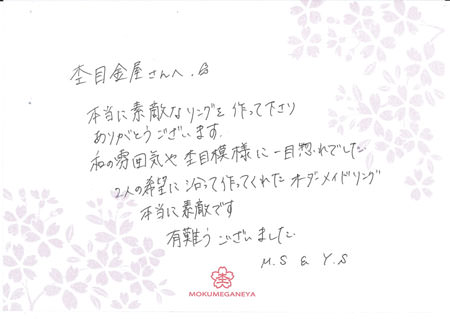 杢目金屋さんへ
本当に素敵なリングを作って下さり
ありがとうございます。
和の雰囲気や杢目模様に一目惚れでした
2人の希望に沿って作ってくれたオーダーメイドリング
本当に素敵です
有難うございました
M.S & Y.S
MOKUMEGANEYA